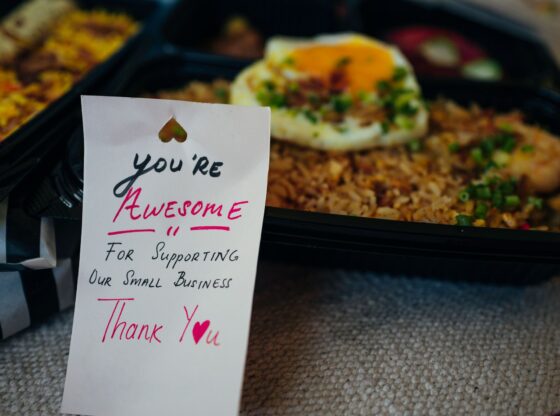 You're
Awesome
"
For Supporting
Our Small Business
Thank You